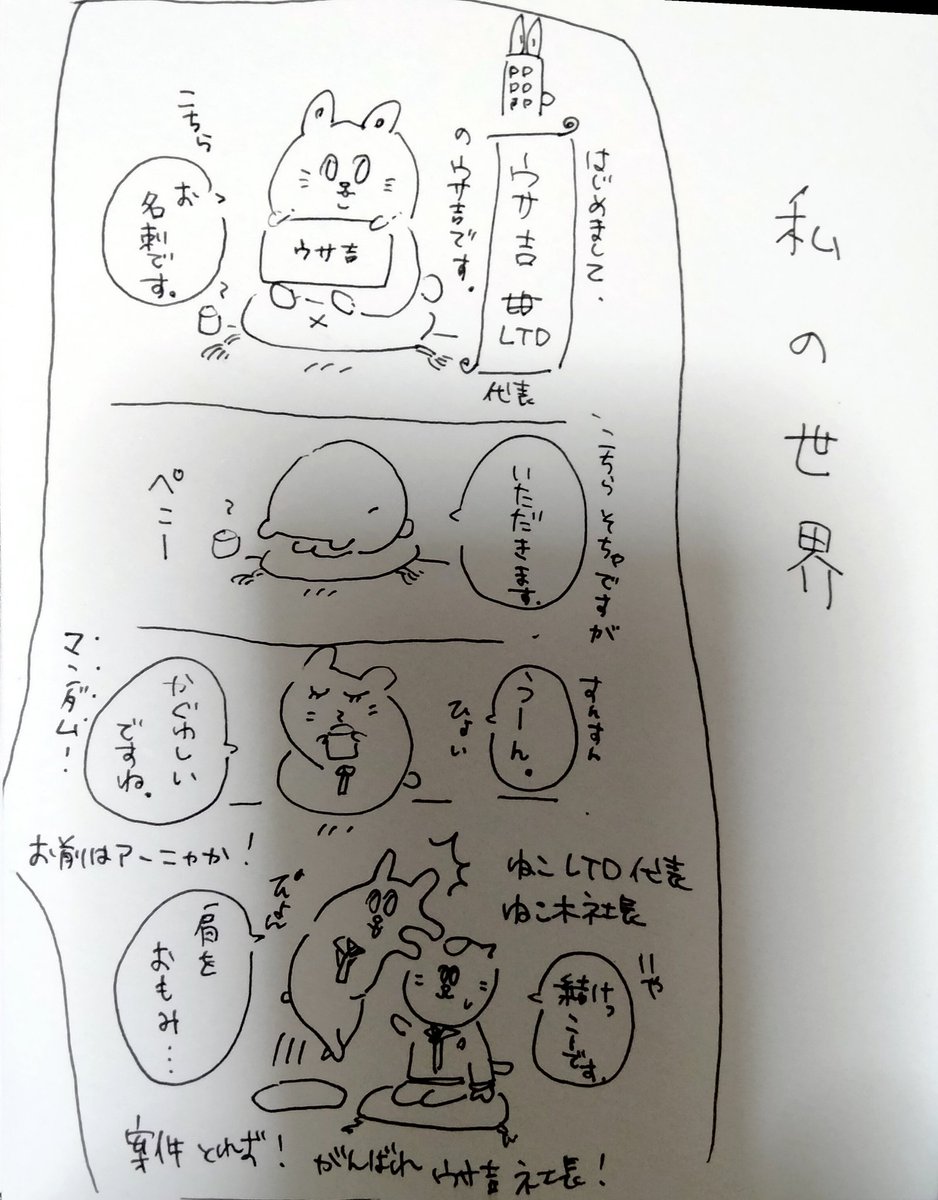 私の世界
はじめまして、
ウサ吉
LTD
代表
のウサ吉です。
ウサ吉
こちら
お
名刺です。
こちらそちゃですが
いただきます。
ぺこー
すんすん
うーん。
ひょい
かぐわしい
ですね。
マンダム!
お前はアーニャか!
ねこLTD代表
ねこ木社長
いや
結けっ
こーです。
ぴょん
肩を
おもみ…
案件とれず!がんばれウサ吉社長!